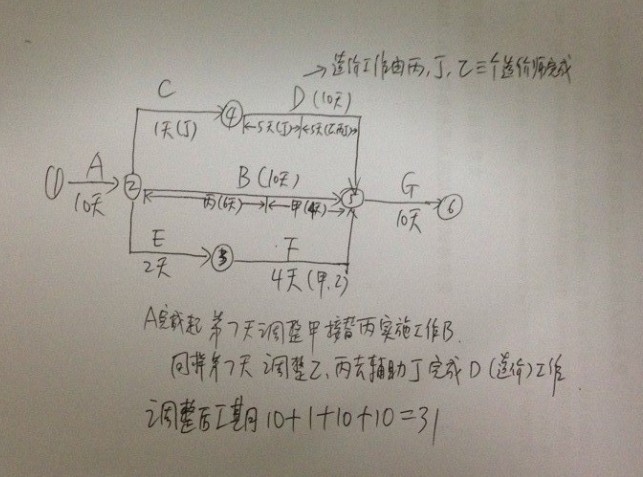 →造价工作由丙,丁,乙三个造价师完成
C
D(10天)
④
1天(丁)
5天(丁)
5天(乙丙丁)
A
B(10天)
G
①
②
⑤
⑥
10天
丙(6天)
甲(4天)
10天
E
F
③
2天
4天(甲.乙)
A完成起第7天调整甲接替丙实施工作B.
同样第7天调整乙、丙去辅助丁完成D(造价)工作
调整后工期10+1+10+10=31